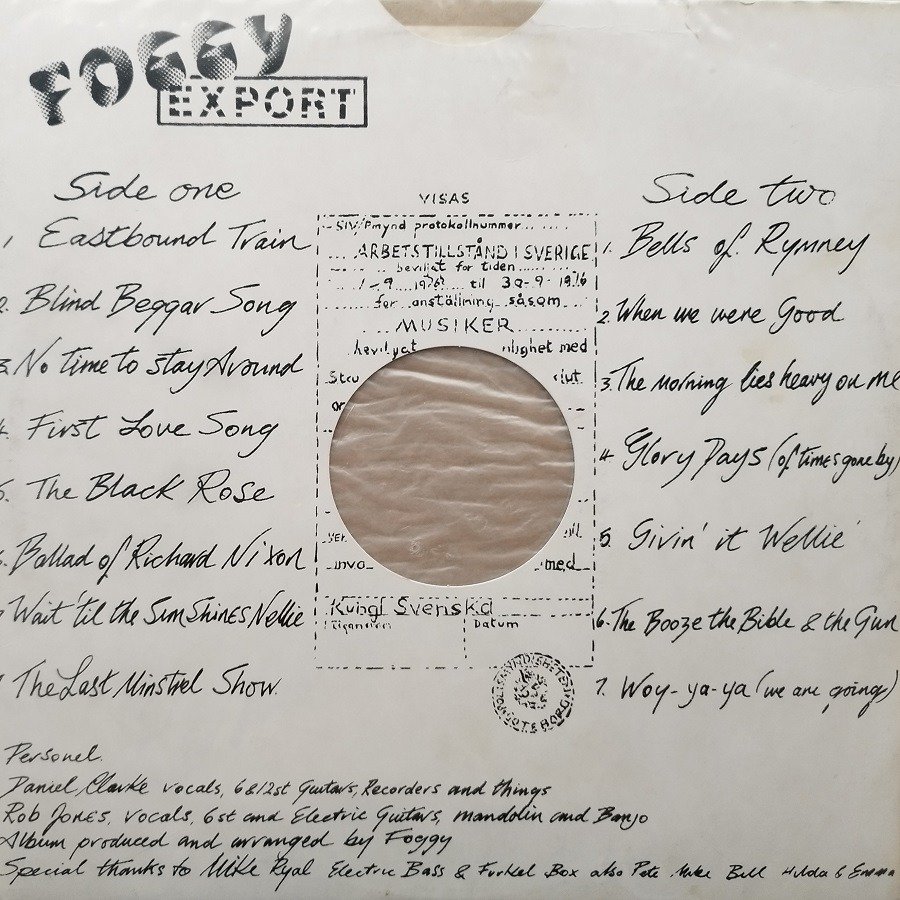 FOGGY
EXPORT
Side one
1 Eastbound Train
2. Blind Beggar Song
3. No time to stay Around
4. First Love Song
5. The Black Rose
6. Ballad of Richard Nixon
7 Wait 'til the Sun Shines Nellie
The Last Minstrel Show.
VISAS
SIV/Pmynd protokollnummer
ARBETSTILLSTÅND I SVERIGE
beviljat för tiden
1-9 1976 til 30-9-1976
för anställning såsom
MUSIKER
med
med
Kungl Svenska
Datum
GÖTEBORG
Side two
1. Bells of Rymney
2. When we were Good
3. The morning lies heavy on me
4. Glory Days (of times gone by)
5. Givin' it Wellie
6. The Booze the Bible & the Gun
7. Woy-ya-ya (we are going)
Personel.
Daniel Clarke vocals, 6&12st Guitars, Recorders and things
Rob Jones, vocals, 6st and Electric Guitars, mandolin and Banjo
Album produced and arranged by Foggy
Special thanks to Mike Ryal Electric Bass & Furkel Box also Pete Mike Bill Hilda & Emma